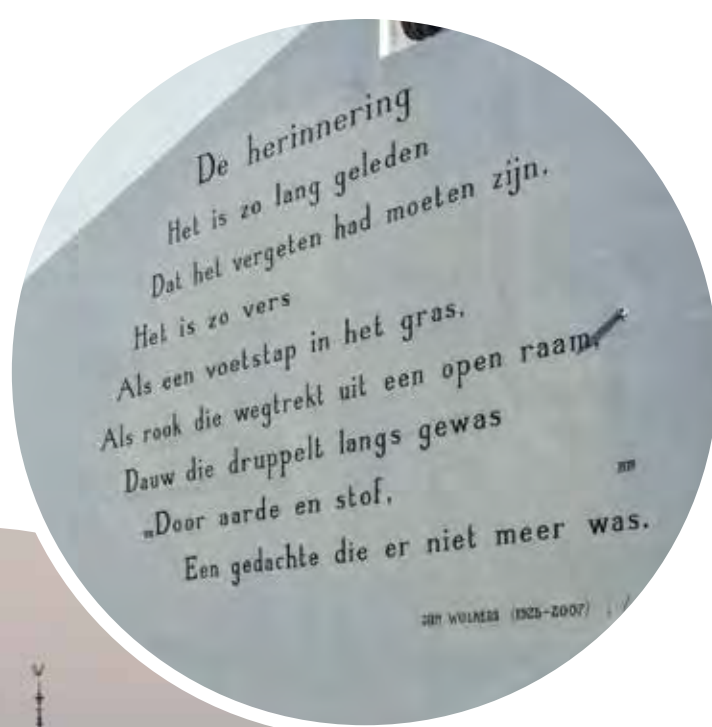 De herinnering
Het is zo lang geleden
Dat het vergeten had moeten zijn.
Het is zo vers
Als een voetstap in het gras.
Als rook die wegtrekt uit een open raam.
Dauw die druppelt langs gewas
Door aarde en stof,
Een gedachte die er niet meer was.
JAN WOLKERS (1925-2007)